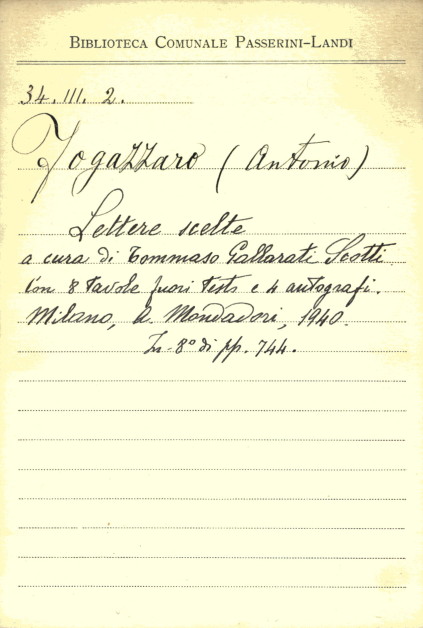 BIBLIOTECA COMUNALE PASSERINI-LANDI
34. III. 2.
Fogazzaro (Antonio)
Lettere scelte
a cura di Tommaso Gallarati Scotti
Con 8 tavole fuori testo e 4 autografi.
Milano, A. Mondadori, 1940.
In-8° di pp. 744.